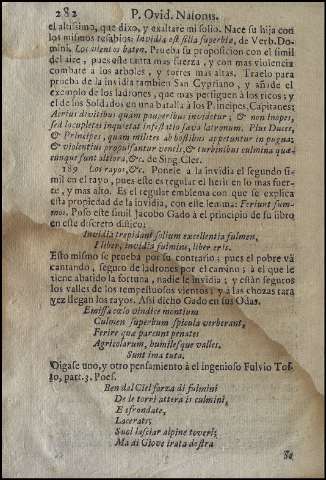 282 P. Ovid. Nasonis.
el altissimo, que dixo, y exaltare mi solio. Nace su hija con
los mismos resabios: Invidia est filia superbiæ, de Verb. Do-
mini. Los vientos baten. Prueba su proposicion con el simil
del aire, pues este tanta mas fuerza, y con mas violencia
combate a los arboles, y torres mas altas. Traelo para
prueba de la invidia tambien San Cypriano, y añade el
exemplo de los ladrones, que mas persiguen à los ricos; y
el de los Soldados en una batalla à los Principes, Capitanes:
divitibus quam pauperibus invidetur; & non inopes,
sed locupletes inquietat infestatio sæva latronum. Plus Duces,
& Principes, quam milites ab hostibus appetuntur in pugna:
& violentius propulsantur ventis, & turbinibus culmina quæ-
cunque sunt altiora, &c. de Sing. Cler.
189 Los rayos, &c. Ponele à la invidia el segundo si-
mil en el rayo, pues este es regular el herir en lo mas fuer-
te, y mas alto. Es el regular emblema con que se explica
esta propiedad de la invidia, con este lemma: Feriunt sum-
mos. Poso este simil Jacobo Gado à el principio de su libro
en este discreto distico:
Invidia trepidant solium excellentia fulmen,
I liber, invidia fulmine, liber eris.
Esto mismo se prueba por su contrario; pues el pobre và
cantando, seguro de ladrones por el camino; à el que le
tiene abatido la fortuna, nadie le invidia; y estàn seguros
los valles de los tempestuosos vientos; y a las chozas rara
vez llegan los rayos. Assi dicho Gado en sus Odas.
Emissa cœlo vindice montium
Culmen superbum spicula verberant,
Ferire quæ parcunt penates
Agricolarum, humilesque valles.
Sunt ima tuta.
Digase uno, y otro pensamiento à el ingenioso Fulvio Tes-
to, part. 3. Poes.
Ben dal Ciel forza di fulmini
De le torri atterra is culmini,
E sfrondate,
Lacerate,
Suol lasciar alpine roveri;
Ma di Giove irata destra